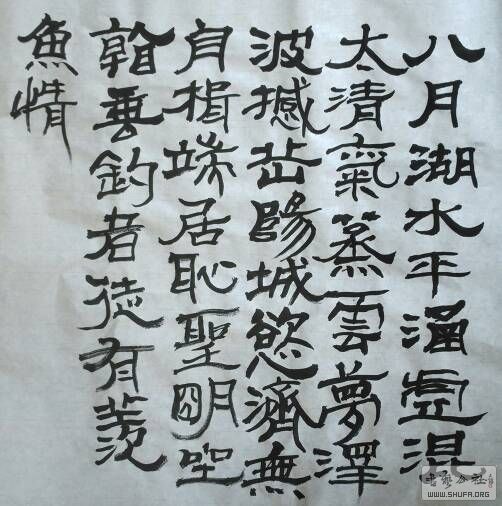 八月湖水平涵虛混
太清氣蒸雲夢澤
波撼岳陽城慾濟無
舟楫端居恥聖明坐
垂釣者徒有羨
魚情
书艺公社
WWW.SHUFA.ORG